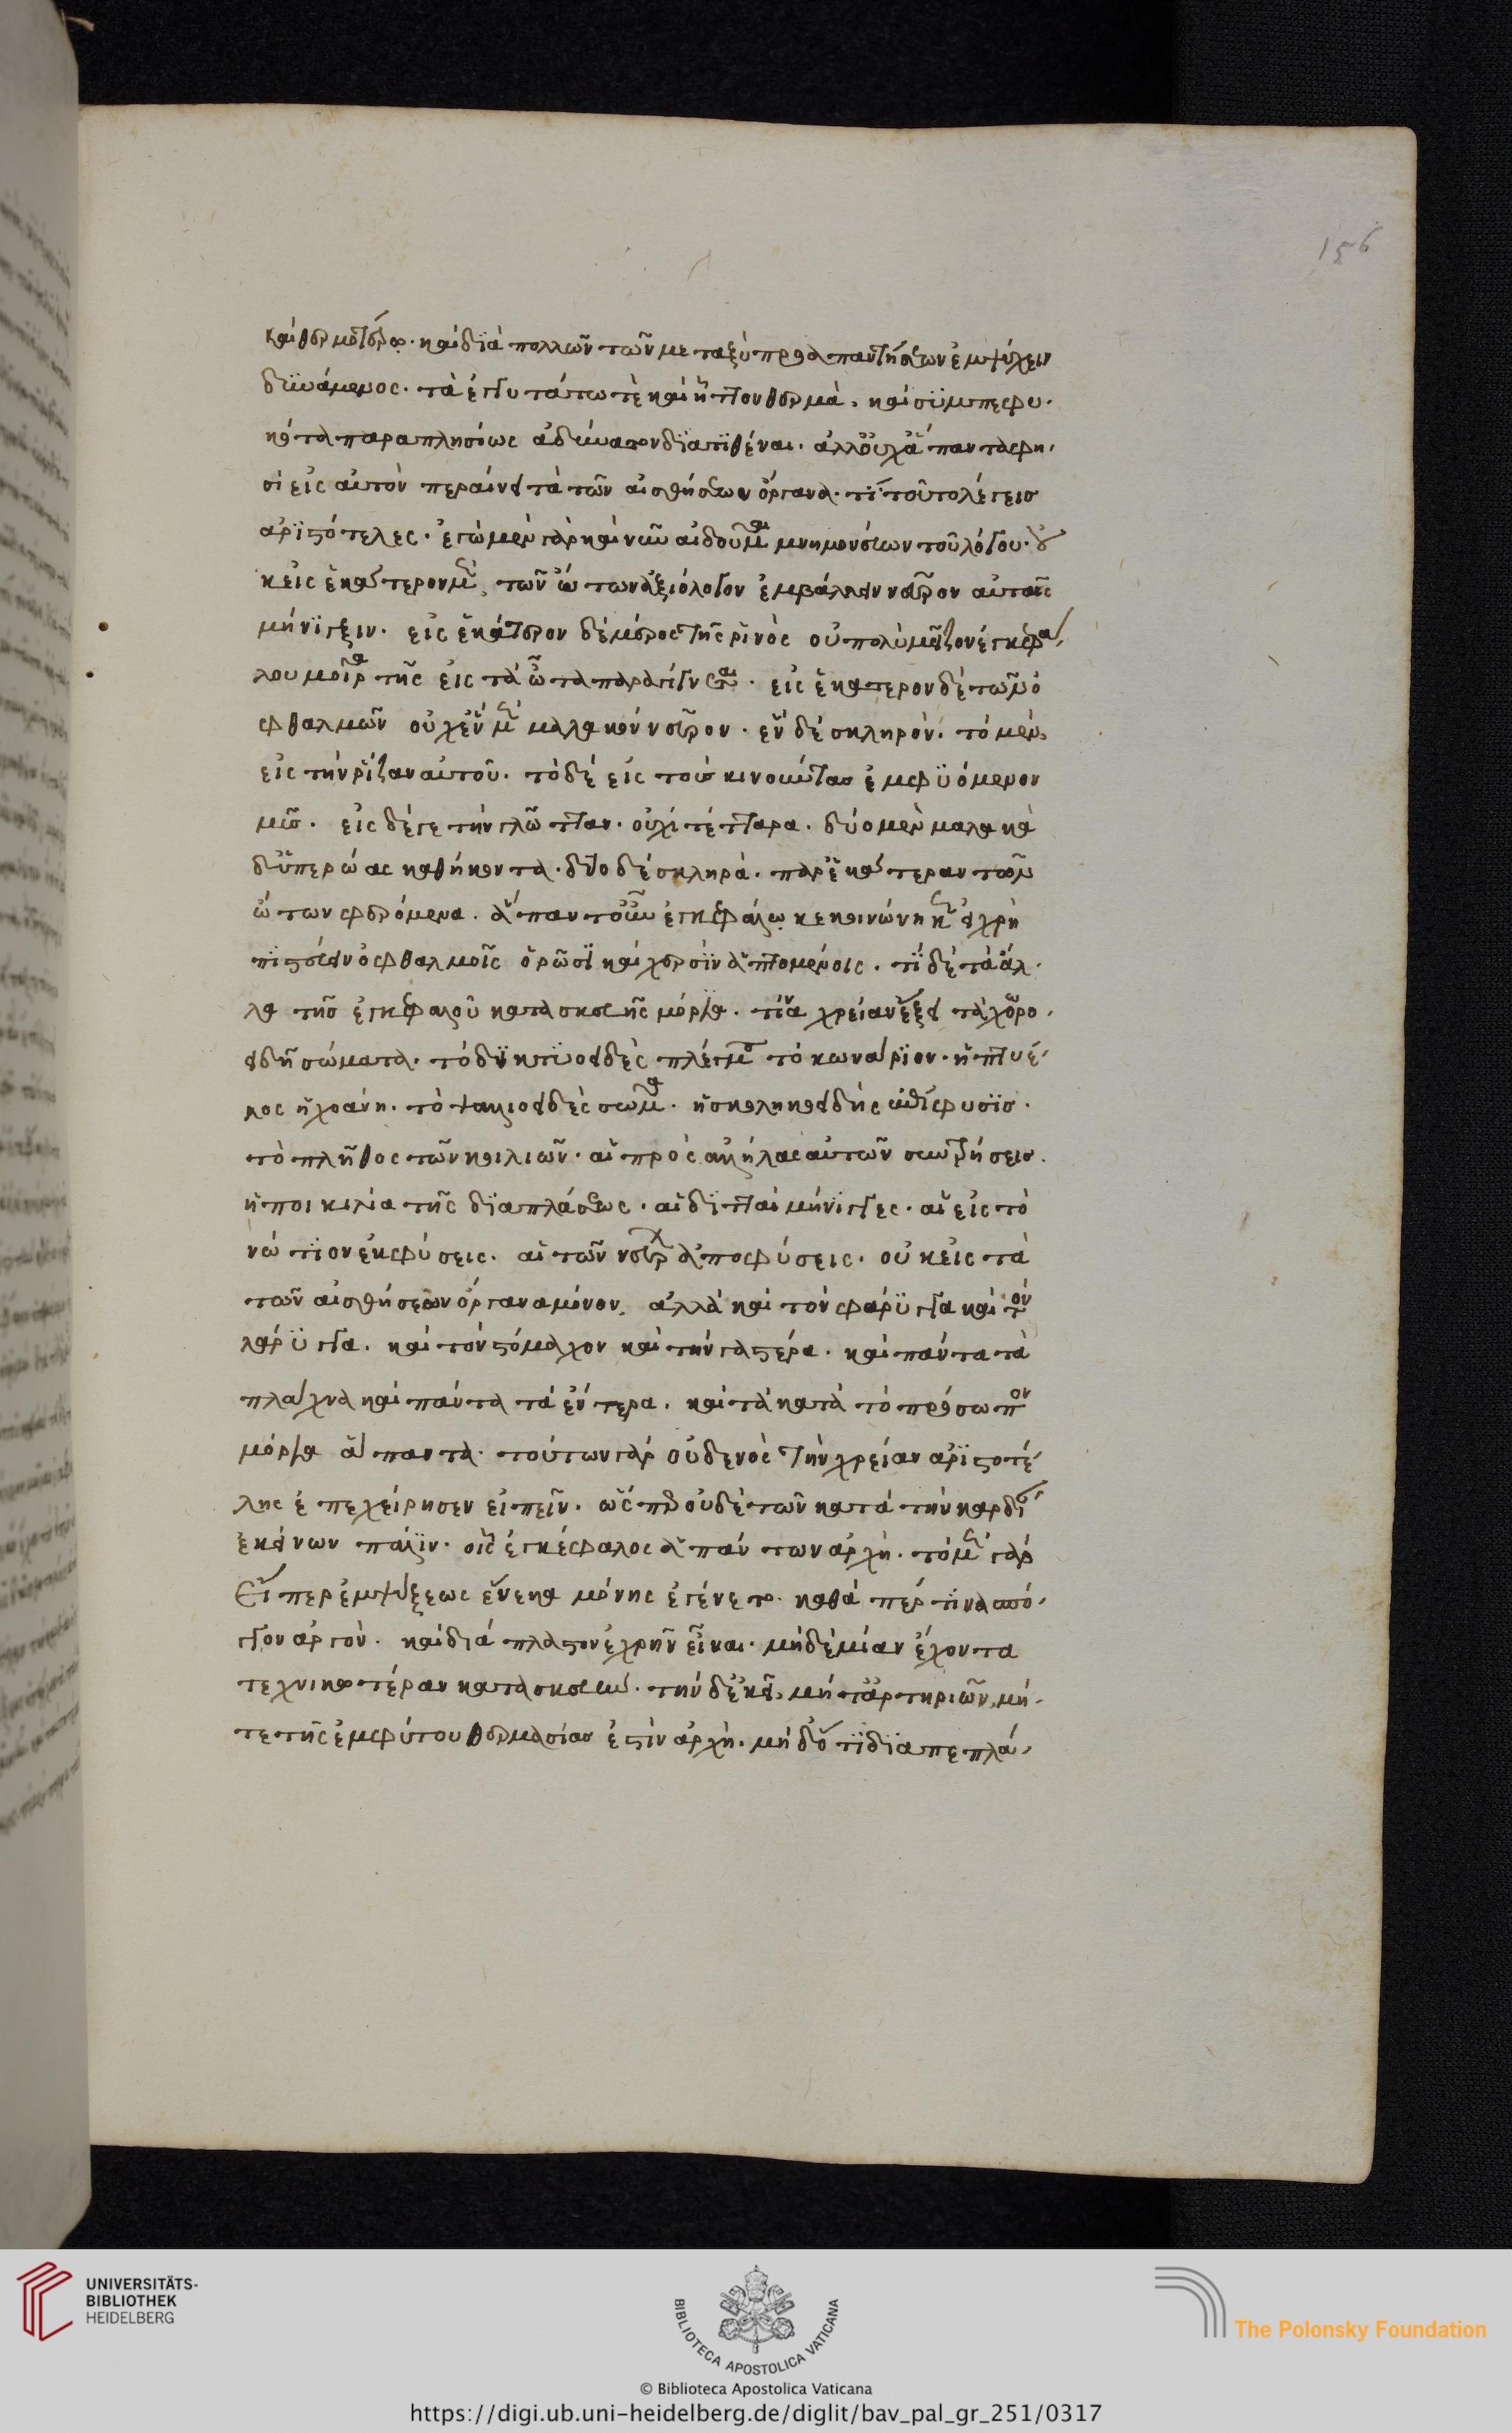 156
καὶ θερμοτέρω· καὶ διὰ πολλῶν τῶν μεταξὺ προαπαντησάντων ἐμψύχειν
δυνάμενος· τὰ ἐγγυτάτω τὲ καὶ ἧττον θερμὰ· καὶ συμπεφυ
κότα παραπλησίως ἀδύνατον διατιθέναι· ἀλλ' οὐχ ἅπαντα φη
σὶ εἰς αὐτὸν περαίνει τὰ τῶν αἰσθήσεων ὄργανα· τί τοῦτο λέγεισ
ἀριστότελες· ἐγὼ μὲν γὰρ καὶ νῦν αἰδοῦμαι μνημονεύων τοῦ λόγου· οὐ
κ εἰς ἑκάτερον μὲν τῶν ὤτων ἀξιόλογον ἐμβάλλει νεῦρον αὐταῖς
μήνιγξιν· εἰς ἑκάτερον δὲ μέρος τῆς ρινὸς οὐ πολὺ μεῖζον ἐγκεφά
λου μοῖρα τῆς εἰς τὰ ὦτα παραγίγνεται· εἰς ἑκάτερον δὲ τῶν ὀ
φθαλμῶν οὐχ ἓν μὲν μαλακὸν νεῦρον· ἓν δὲ σκληρόν· τὸ μὲν
εἰς τὴν ρίζαν αὐτοῦ· τὸ δὲ εἰς τοὺσ κινοῦντασ ἐμφυόμενον
μῦσ· εἰς δέ γε τὴν γλῶτταν· οὐχὶ τέτταρα· δύο μὲν μαλακὰ
δι' ὑπερώας καθήκοντα· δύο δὲ σκληρὰ· παρ' ἑκάτεραν τῶν
ὤτων φερόμενα· ἅπαντ' οὖν ἐγκεφάλω κεκοινώνηκεν εἰ χρὴ
πιστεύειν ὀφθαλμοῖς ὁρῶσι καὶ χερσὶν ἁπτομέναις· τί δὲ τὰ ἄλ
λα τῆσ ἐγκεφάλου κατασκευῆς μόρια· τίνα χρείαν ἕξει τὰ χορο
ειδῆ σώματα· τὸ δικτυοειδὲς πλέγμα τὸ κωνάριον· ἡ πτυέ
λος ἡ χοάνη· τὸ ψαλιοειδὲς σῶμα· ἡ σκωληκοειδὴς ἐπίφυσισ·
τὸ πλῆθος τῶν κοιλιῶν· αἱ πρὸς ἀλλήλας αὐτῶν συντρήσεισ·
ἡ ποικιλία τῆς διαπλάσεως· αἱ διτταὶ μήνιγγες· αἱ εἰς τὸ
νώτιον ἐκφύσεις· αἱ τῶν νεύρων ἀποφύσεις· οὐκ εἰς τὰ
τῶν αἰσθήσεων ὄργανα μόνον· ἀλλὰ καὶ τὸν φάρυγγα καὶ τὸν
λάρυγγα· καὶ τὸν στόμαχον καὶ τὴν γαστέρα· καὶ πάντα τὰ
σπλάγχνα καὶ πάντα τὰ ἔντερα· καὶ τὰ κατὰ τὸ πρόσωπον
μόρια ἅπαντα· τούτων γὰρ οὐδενὸς τὴν χρείαν ἀριστοτέ
λης ἐπεχείρησεν εἰπεῖν· ὥσπερ οὐδὲ τῶν κατὰ τὴν καρδίαν
ἐκείνων πάλιν· οἷς ἐγκέφαλος ἁπάντων ἀρχὴ· τὸ μὲν γὰρ
Εἴπερ ἐμψύξεως ἕνεκα μόνης ἐγένετο· καθάπερ τινα σπό
γγον ἀργὸν· καὶ διάπλαστον ἐχρῆν εἶναι· μηδεμίαν ἔχοντα
τεχνικωτέραν κατασκευὴν· τὴν δ' ἐκεῖ μήτ' ἀρτηριῶν· μή
τε τῆς ἐμφύτου θερμασίασ ἐστὶν ἀρχὴ· μηδ' ὅτι διαπεπλά
UNIVERSITÄTS-
BIBLIOTHEK
HEIDELBERG
BIBLIOTECA APOSTOLICA VATICANA
The Polonsky Foundation
© Biblioteca Apostolica Vaticana
https://digi.ub.uni-heidelberg.de/diglit/bav_pal_gr_251/0317